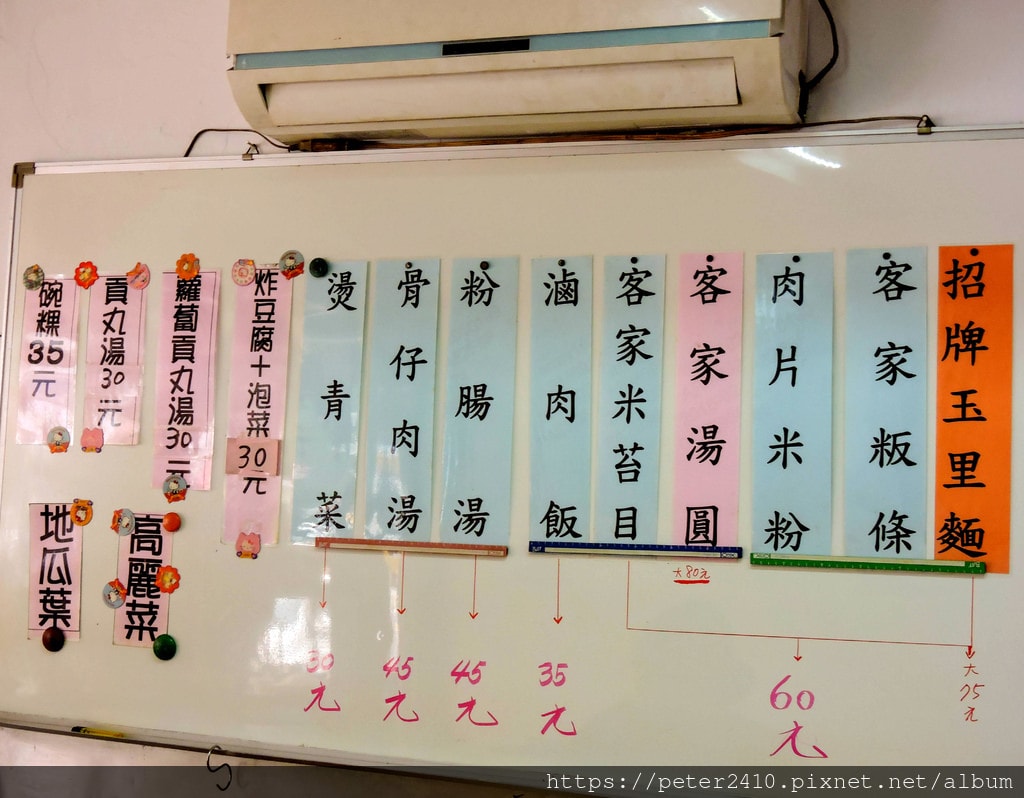 招牌玉里麵
客家粄條
肉片米粉
客家湯圓
客家米苔目
滷肉飯
粉腸湯
骨仔肉湯
燙青菜
炸豆腐+泡菜30元
蘿蔔貢丸湯30元
貢丸湯30元
碗粿35元
高麗菜
地瓜葉
大80元
大75元
60元
35元
45元
45元
30元
https://peter2410.pixnet.net/album